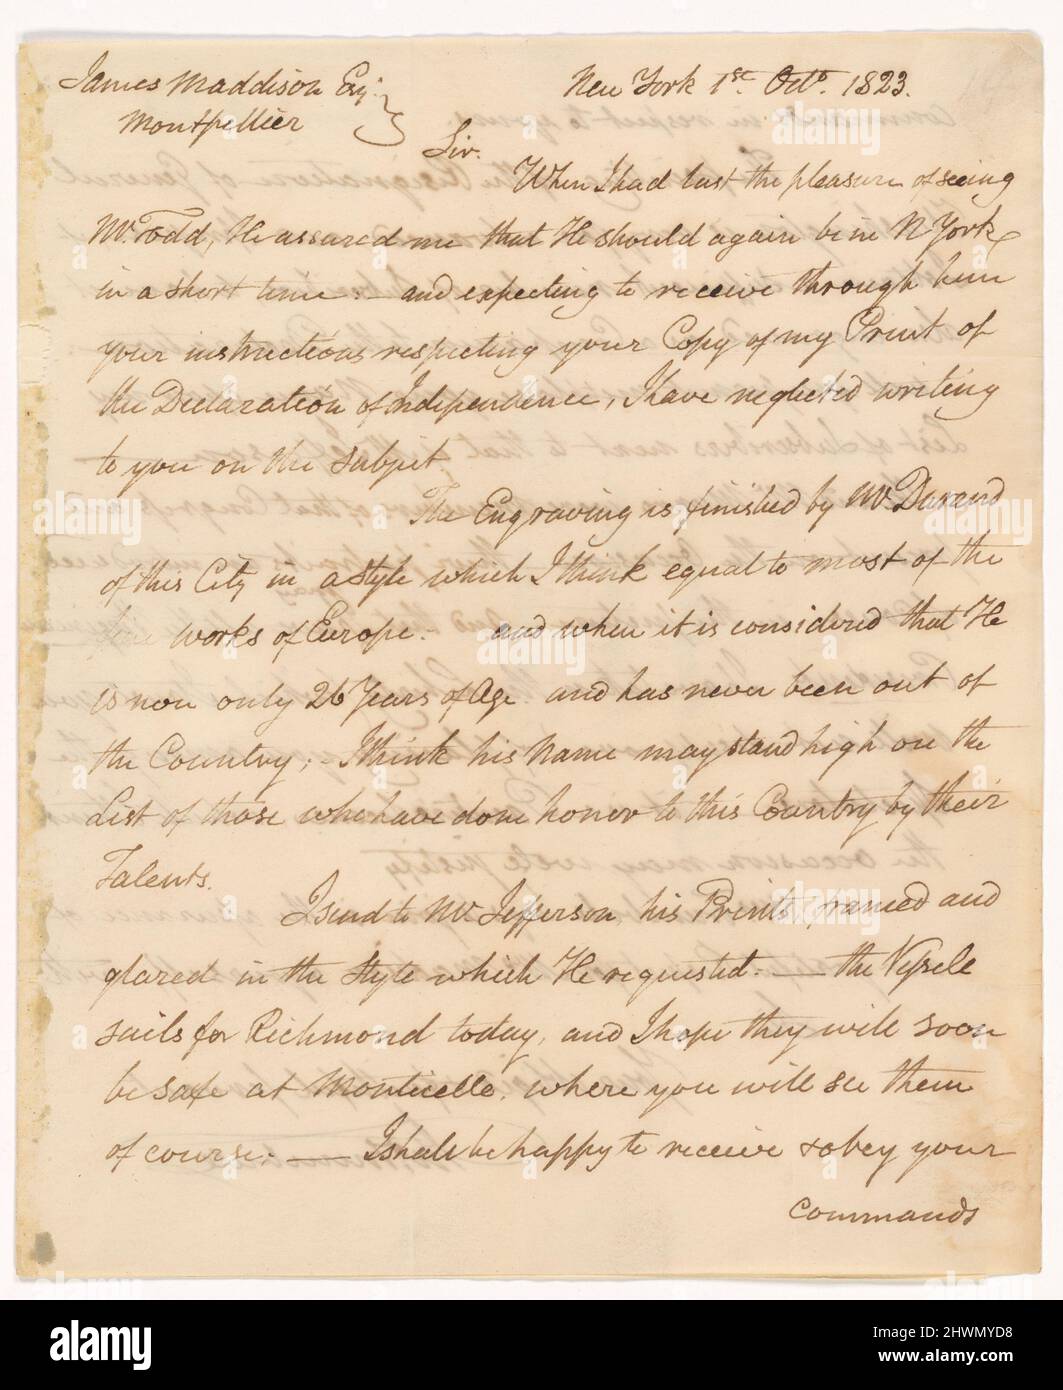 James Maddison Esqr.
Montpellier
New York 1st. Octo. 1823.
Sir.
When I had last the pleasure of seeing
Mr. Todd, He assured me that He should again be in N York
in a short time: – and expecting to receive through him
your instructions respecting your Copy of my Print of
the Declaration of Independence, I have neglected writing
to you on the subject.
The Engraving is finished by Mr. Durand
of this City in a style which I think equal to most of the
fine works of Europe. – and when it is considered that He
is now only 26 Years of Age. and has never been out of
the Country; – I think his Name may stand high on the
List of those who have done honor to this Country by their
Talents.
I send to Mr. Jefferson, his Prints, framed and
glazed in the Style which He requested. — the Vessele
sails for Richmond today, and I hope they will soon
be safe at Monticello, where you will see them
of course. — I shall be happy to receive & obey your
commands
alamy
Image ID: 2HWMYD8
www.alamy.com